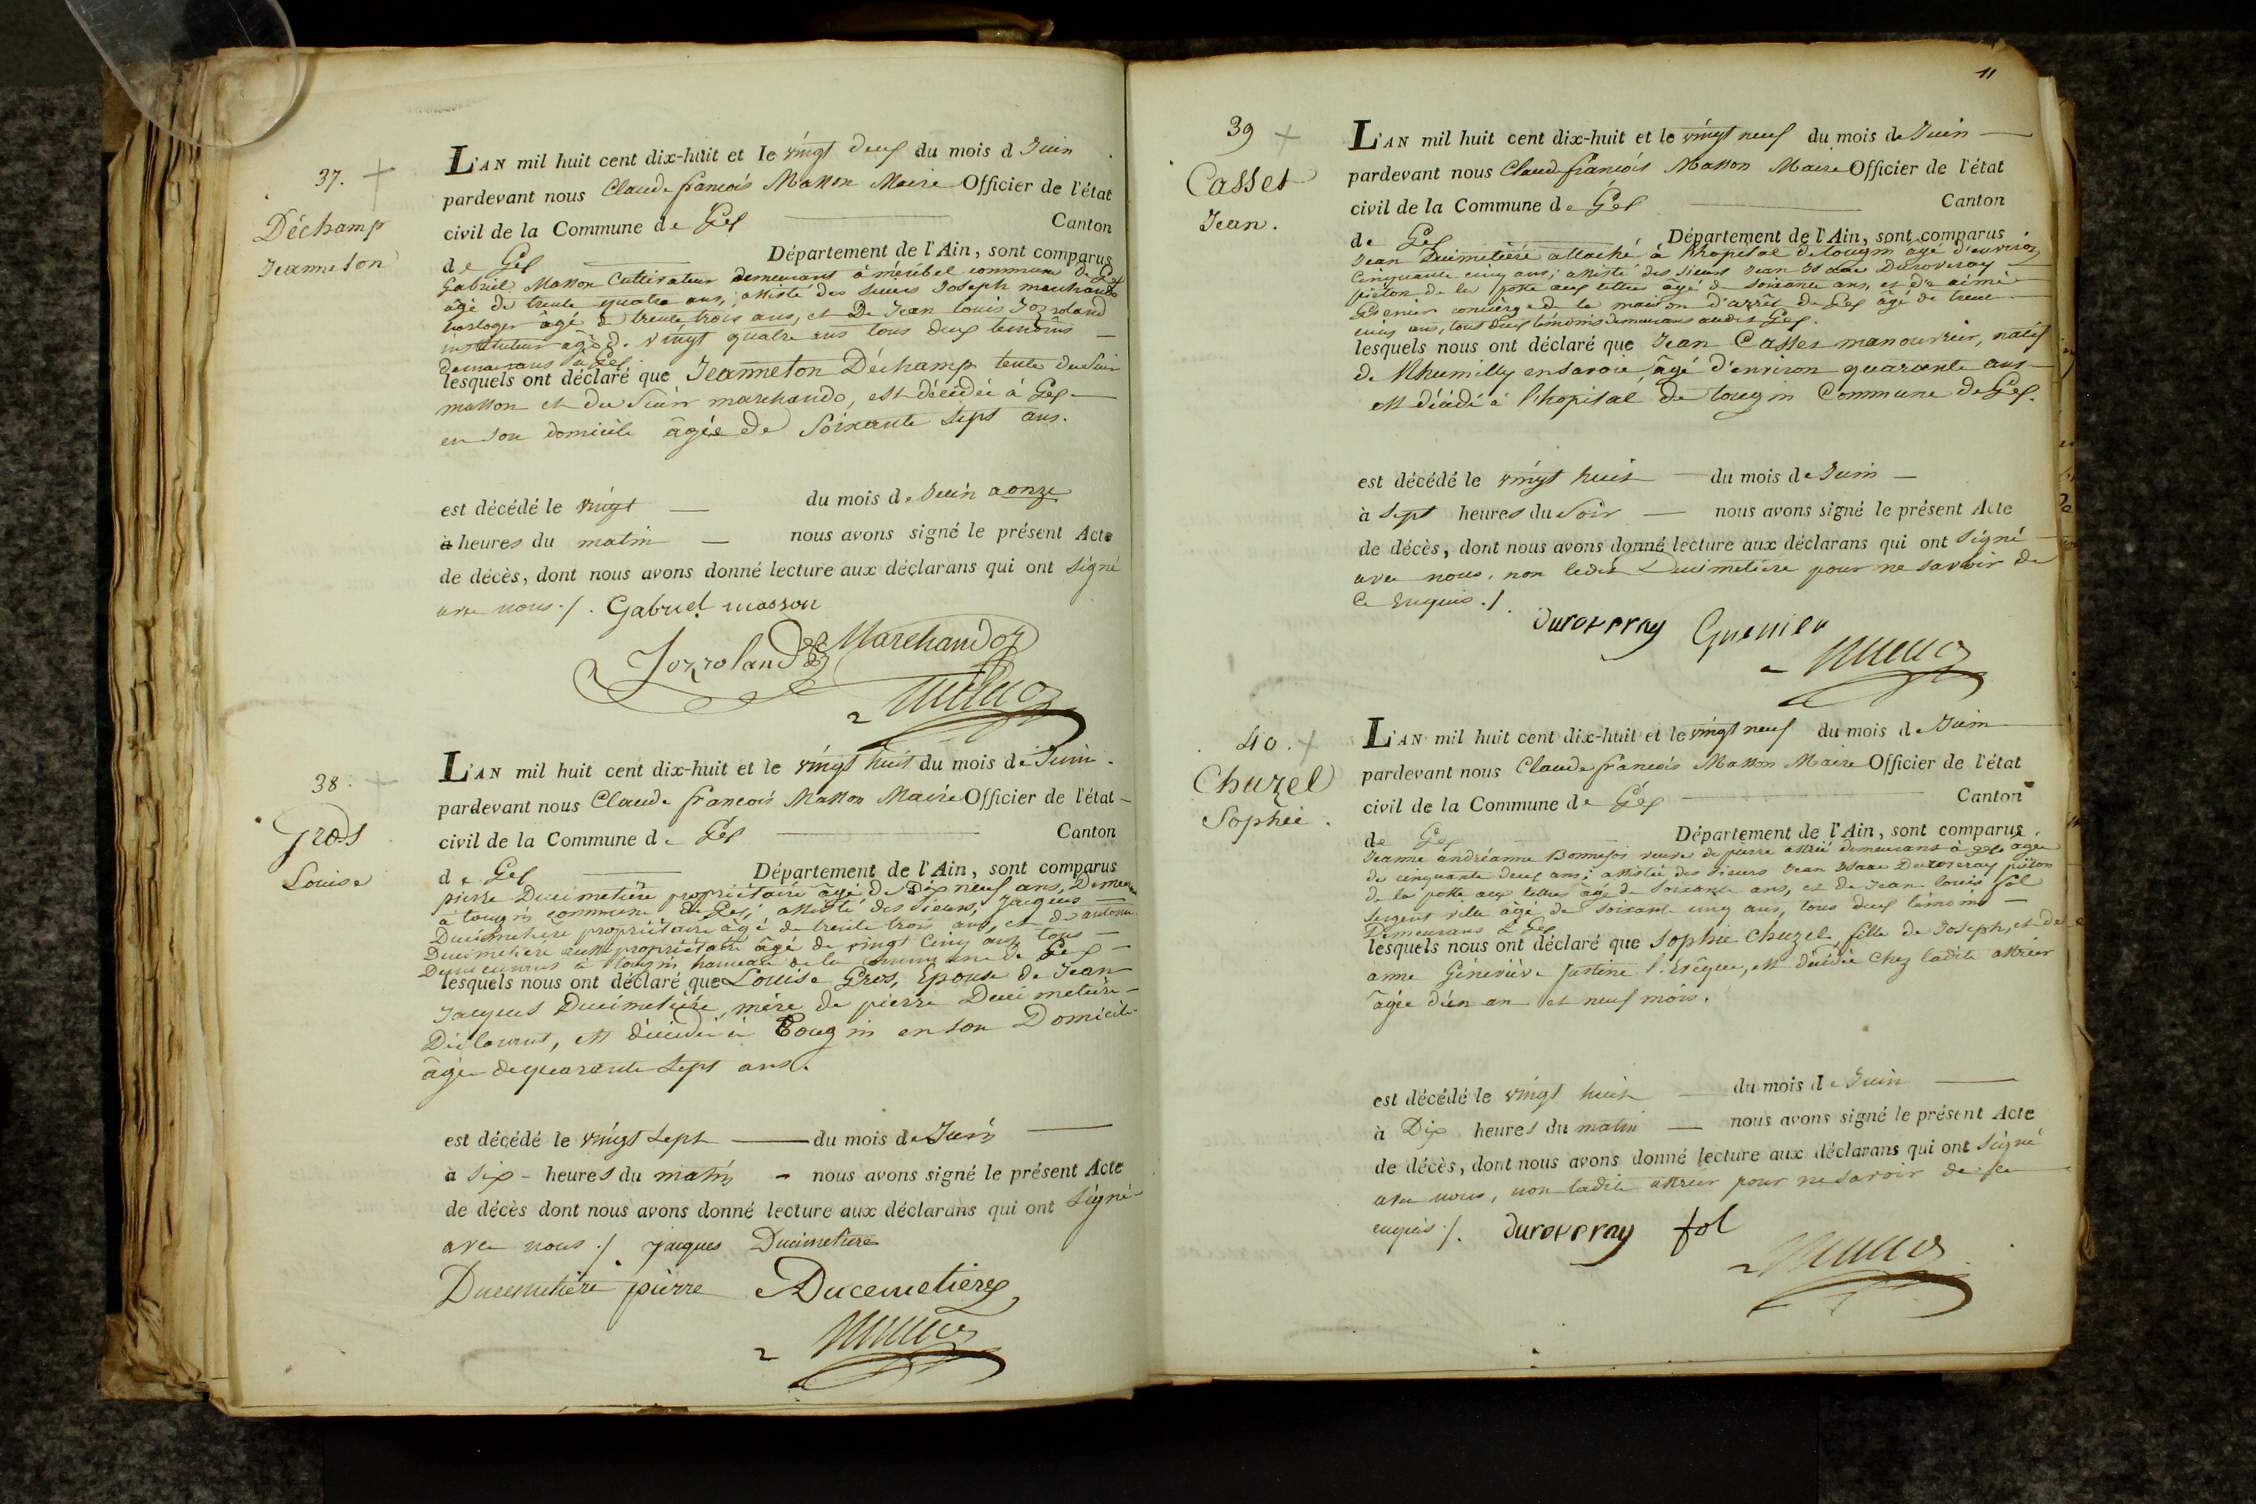 37. +
Déchamp
Jeanneton
L'AN mil huit cent dix-huit et le vingt deux du mois d Juin
pardevant nous Claude françois Masson Maire Officier de l'état
civil de la Commune de Gex Canton
de Gex Département de l'Ain, sont comparus
Gabriel Masson Cultivateur demeurant à méribel commune de Gex
âgé de trente quatre ans, assisté des sieurs Joseph marchando
horloger âgé de trente trois ans, et De Jean Louis Jozroland
instituteur âgé de vingt quatre ans tous deux temoins
demeurans à Gex
lesquels ont déclaré que Jeanneton Déchamp tente du Sieur
masson et du Sieur marchando, est décédée à Gex
en son domicile âgée de Soixante Sept ans.
est décédé le vingt du mois de Juin a onze
à heures du matin nous avons signé le présent Acte
de décès, dont nous avons donné lecture aux déclarans qui ont signé
avec nous ./. Gabriel masson
Jozroland Marchandoz
38. +
Gros
Louise
L'AN mil huit cent dix-huit et le vingt huit du mois de Juin.
pardevant nous Claude françois Masson Maire Officier de l'état
civil de la Commune de Gex Canton
de Gex Département de l'Ain, sont comparus
pierre Ducimetière propriétaire âgé de Dix neuf ans, Demeurant
à tougin commune de Gex; assisté des Sieurs, Jacques
Ducimetière propriétaire âgé de trente trois ans, et de antoine
Ducimetière aussi propriétaire âgé de vingt cinq ans tous
Demeurans à tougin hameau de la commune de Gex
lesquels nous ont déclaré que Louise Gros, Epouse de Jean
Jacques Ducimetière, mère de pierre Ducimetière
Déclarant, est décédée à Tougin en son Domicile
âgée de quarante Sept ans.
est décédé le vingt Sept du mois de Juin
à six heures du matin nous avons signé le présent Acte
de décès dont nous avons donné lecture aux déclarans qui ont signé
avec nous ./. jacques Ducimetiere
Ducimetière pierre Ducemetierex
11
39 +
Casset
Jean.
L'AN mil huit cent dix-huit et le vingt neuf du mois de Juin
pardevant nous Claude françois Masson Maire Officier de l'état
civil de la Commune de Gex Canton
de Gex Département de l'Ain, sont comparus
Jean Ducimetière attaché à l'hopital de tougin âgé d'environ
Cinquante cinq ans; assisté des sieurs Jean Isaac Duroveray
piéton de la poste aux lettres âgé de soixante ans, et d'aimé
Grenier concierge de la maison d'arrêt de Gex âgé de trente
cinq ans, tous deux témoins demeurans audit Gex.
lesquels nous ont déclaré que Jean Casset manouvrier, natif
de Rhumilly en savoie, âgé d'environ quarante ans
est décédé à l'hopital de tougin Commune de Gex.
est décédé le vingt huit du mois de Juin
à sept heures du soir nous avons signé le présent Acte
de décès, dont nous avons donné lecture aux déclarans qui ont signé
avec nous, non ledit Ducimetière pour ne savoir de
ce Enquis ./.
duroveray Grenier
40. +
Chuzel
Sophie.
L'AN mil huit cent dix-huit et le vingt neuf du mois de Juin
pardevant nous Claude françois Masson Maire Officier de l'état
civil de la Commune de Gex Canton
de Gex Département de l'Ain, sont comparus
Jeanne andréanne Bonnefoi veuve de pierre demeurant à gex agée
de cinquante deux ans; assistée des sieurs Jean Isaac Duroveray piéton
de la poste aux lettres âgé de soixante ans, et de Jean louis fol
Sergent ville âgé de soixante cinq ans, tous deux témoins
Demeurans à Gex
lesquels nous ont déclaré que Sophie Chuzel, fille de Joseph, et de
anne Géneviève Justine l'Evêque, est décédée chez ladite
âgée d'un an et neuf mois.
est décédé le vingt huit du mois de Juin
à Dix heures du matin nous avons signé le présent Acte
de décès, dont nous avons donné lecture aux déclarans qui ont signé
avec nous, non ladite pour ne savoir de ce
enquis ./. duroveray fol